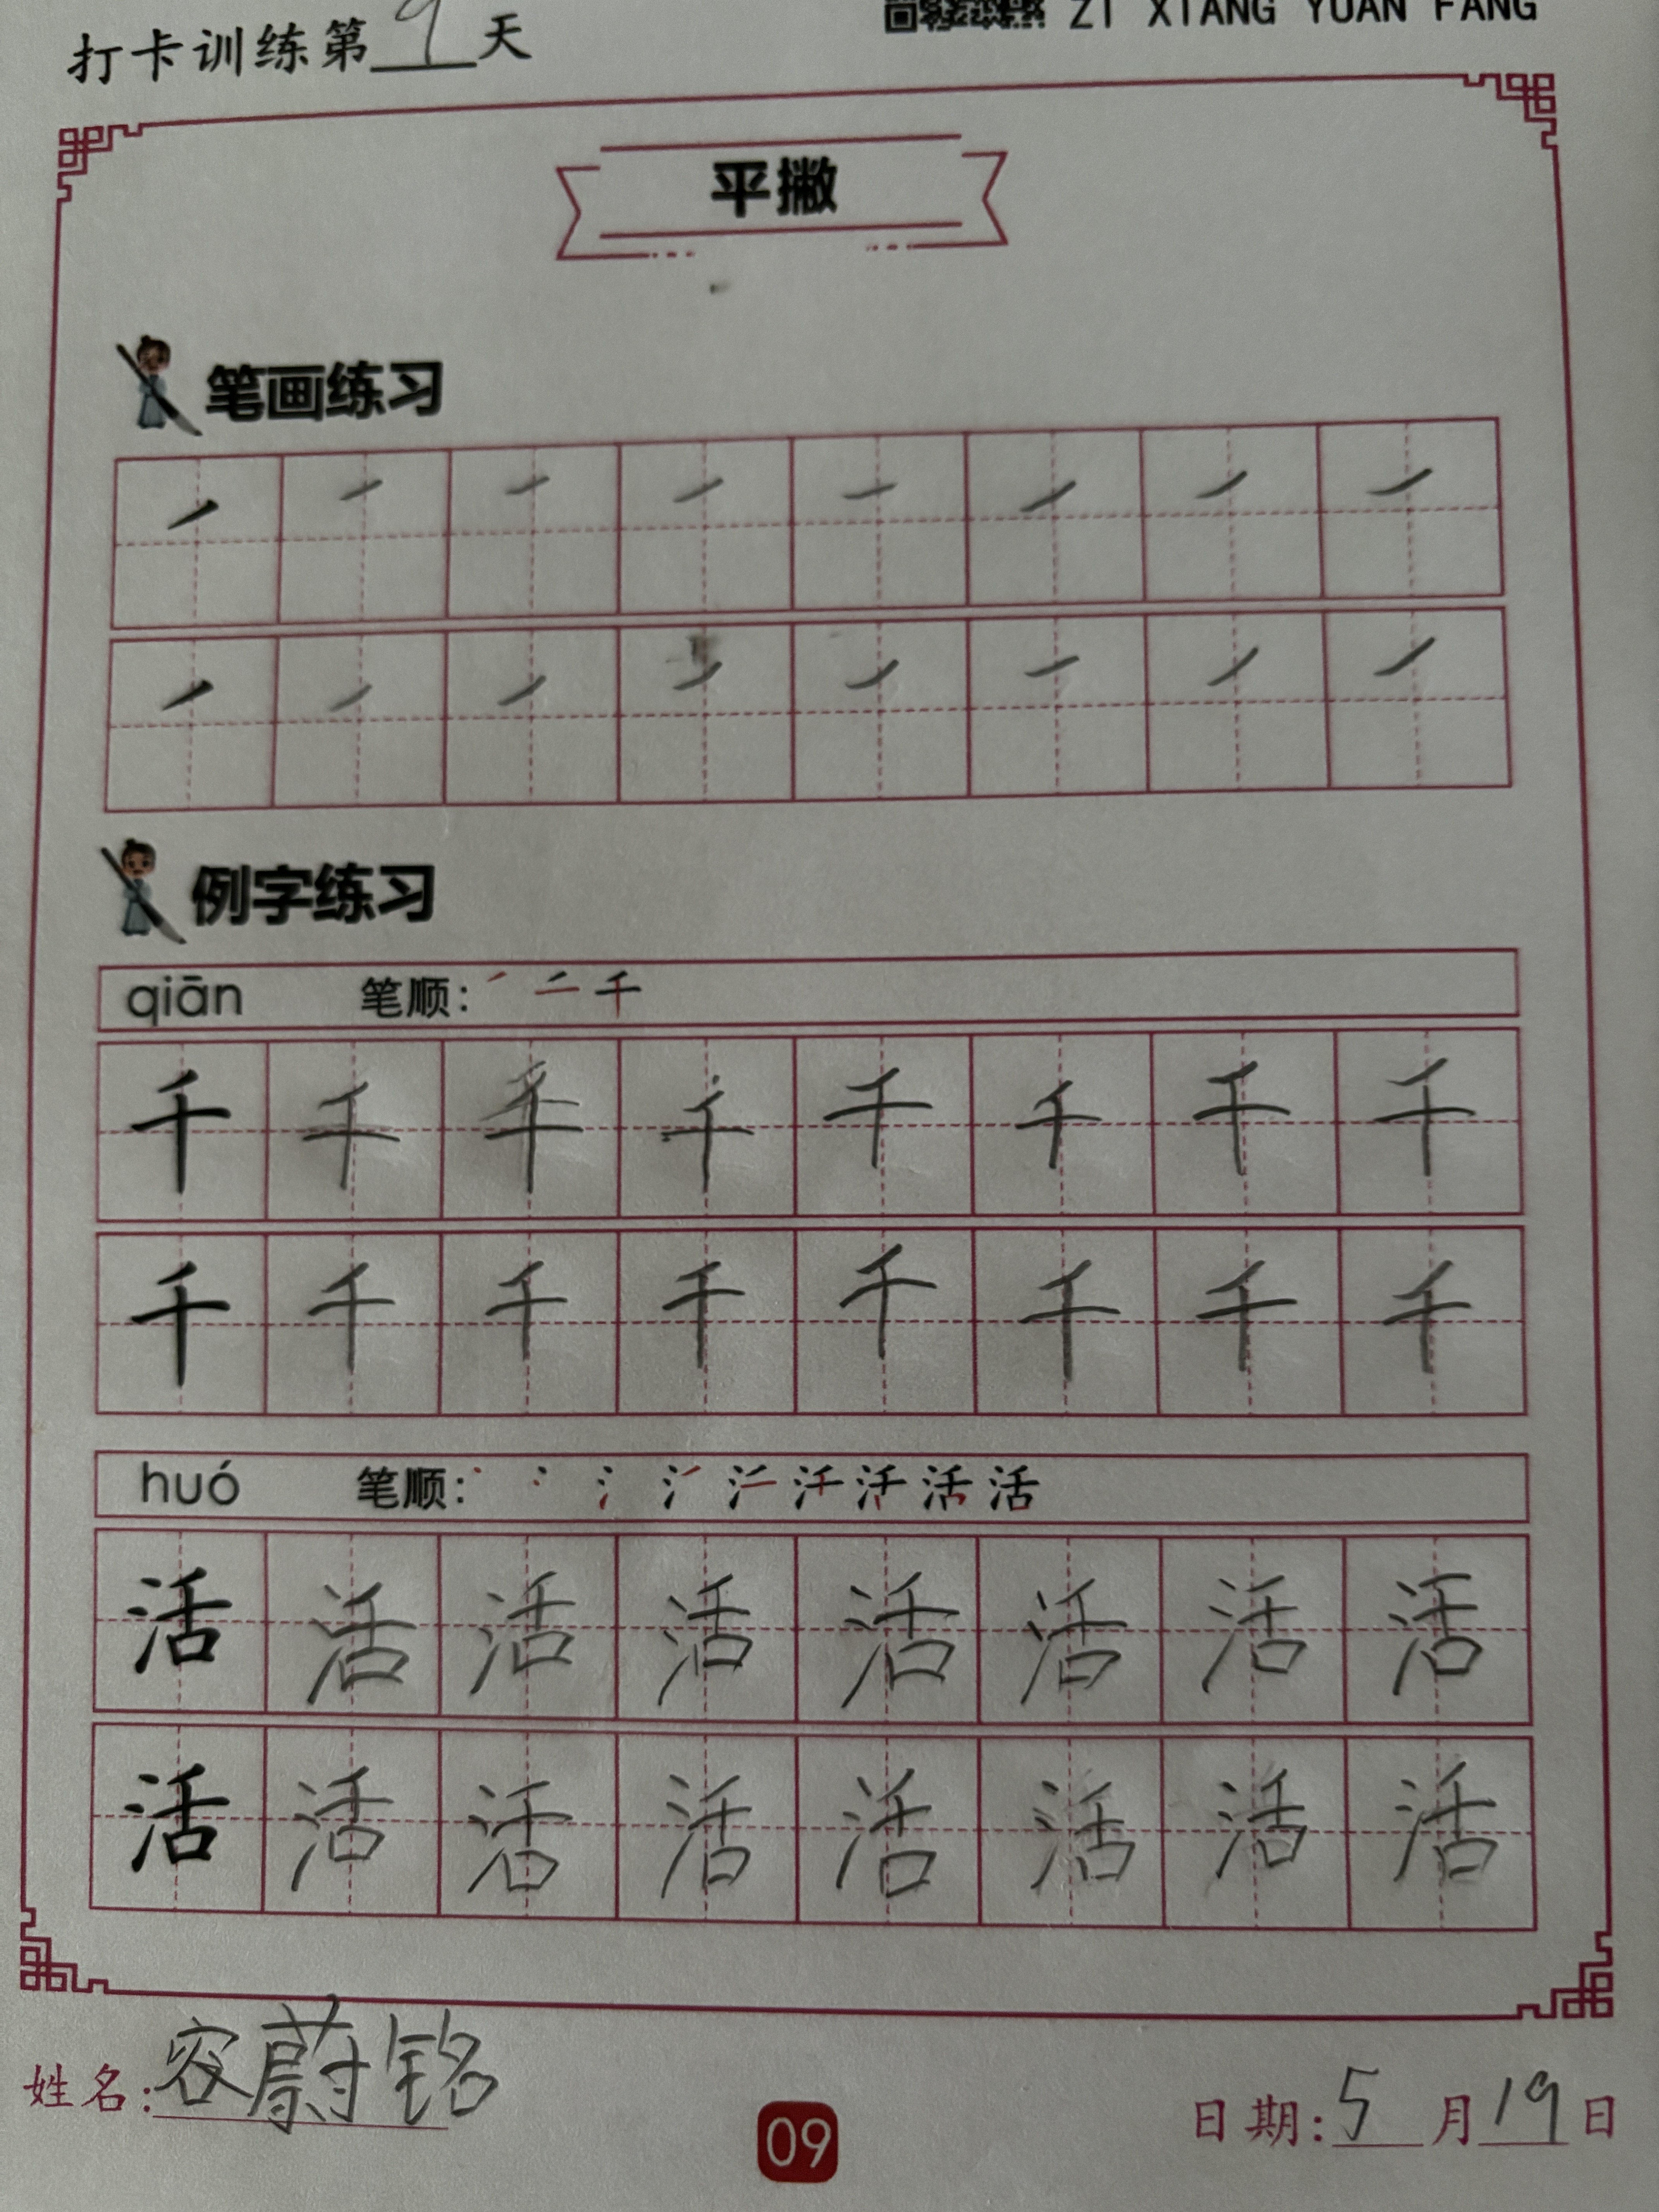 打卡训练第9天
ZI XIANG YUAN FANG
平撇
笔画练习
例字练习
qiān 笔顺: 千
千 千 千 千 千 千 千 千
千 千 千 千 千 千 千 千
huó 笔顺: 活
活 活 活 活 活 活 活 活
活 活 活 活 活 活 活 活
姓名: 容蔚铭
09
日期: 5月19日